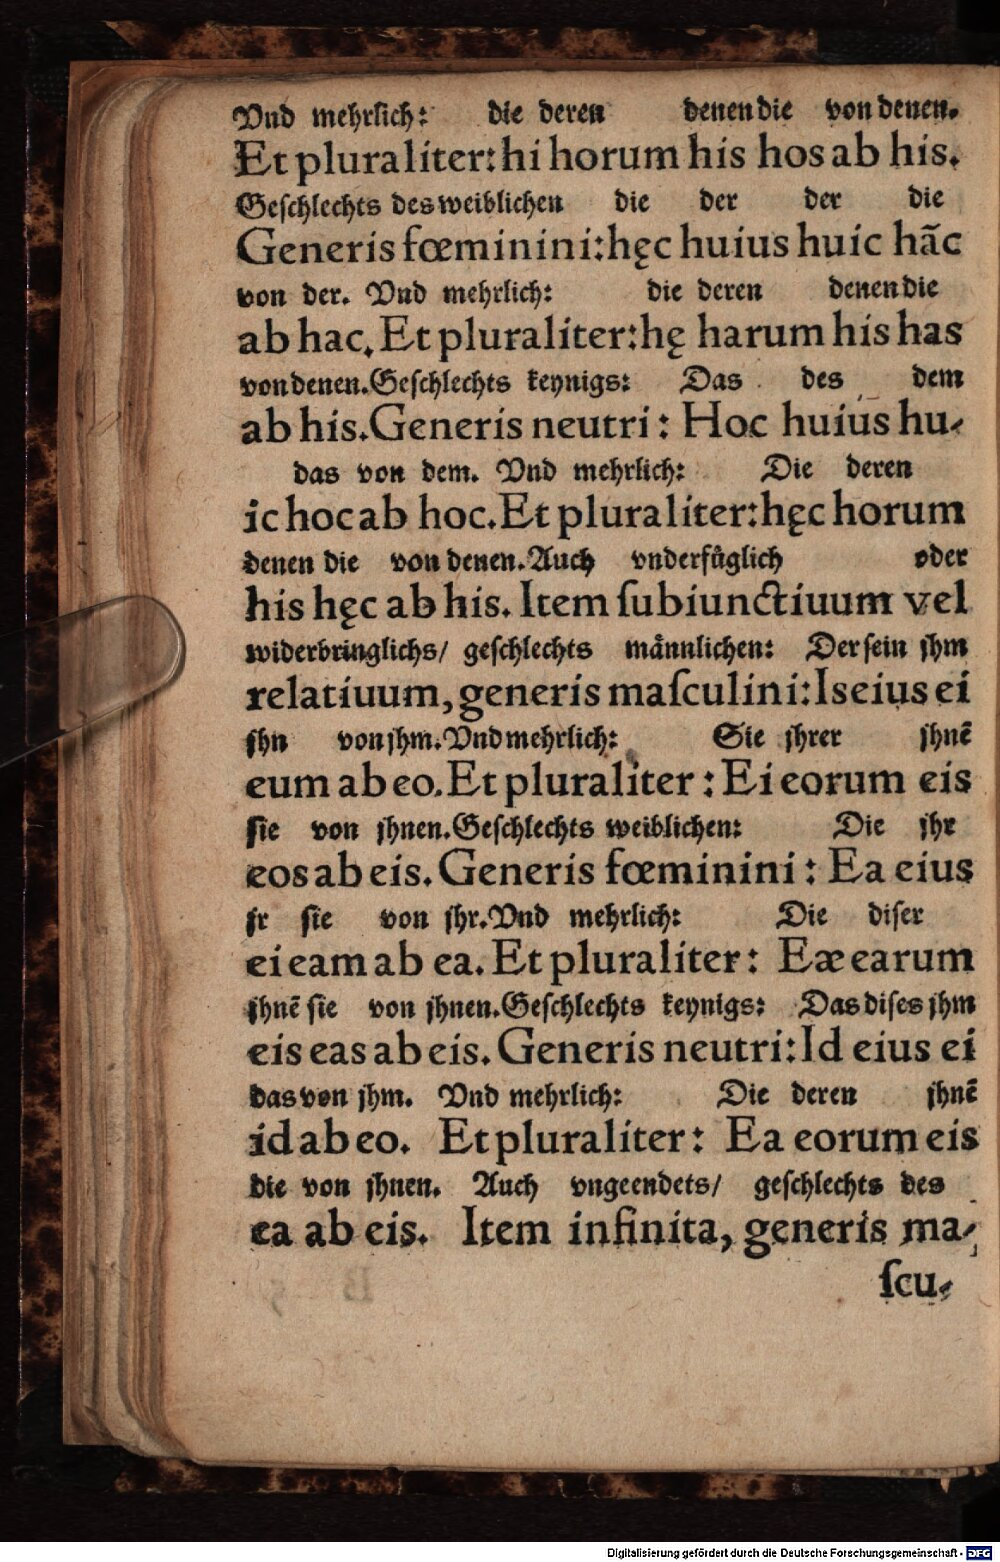 Vnd mehrlich: die deren denen die von denen.
Et pluraliter: hi horum his hos ab his.
Geschlechts des weiblichen die der der die
Generis fœminini: hęc huius huic hāc
von der. Vnd mehrlich: die deren denen die
ab hac. Et pluraliter: hę harum his has
von denen. Geschlechts keynigs: Das des dem
ab his. Generis neutri: Hoc huius hu-
das von dem. Vnd mehrlich: Die deren
ic hoc ab hoc. Et pluraliter: hęc horum
denen die von denen. Auch vnderfůglich oder
his hęc ab his. Item ſubiunctiuum vel
widerbringlichs/ geſchlechts mãnnlichen: Der ſein jhm
relatiuum, generis maſculini: Is eius ei
jhn von jhm. Vnd mehrlich: Sie jhrer jhnẽ
eum ab eo. Et pluraliter: Ei eorum eis
ſie von jhnen. Geſchlechts weiblichen: Die jhr
eos ab eis. Generis fœminini: Ea eius
jr ſie von jhr. Vnd mehrlich: Die diſer
ei eam ab ea. Et pluraliter: Eæ earum
jhnẽ ſie von jhnen. Geſchlechts keynigs: Das diſes jhm
eis eas ab eis. Generis neutri: Id eius ei
das von jhm. Vnd mehrlich: Die deren jhnẽ
id ab eo. Et pluraliter: Ea eorum eis
die von jhnen. Auch vngeendets/ geſchlechts des
ea ab eis. Item infinita, generis ma-
ſcu-
Digitalisierung gefördert durch die Deutsche Forschungsgemeinschaft - DFG